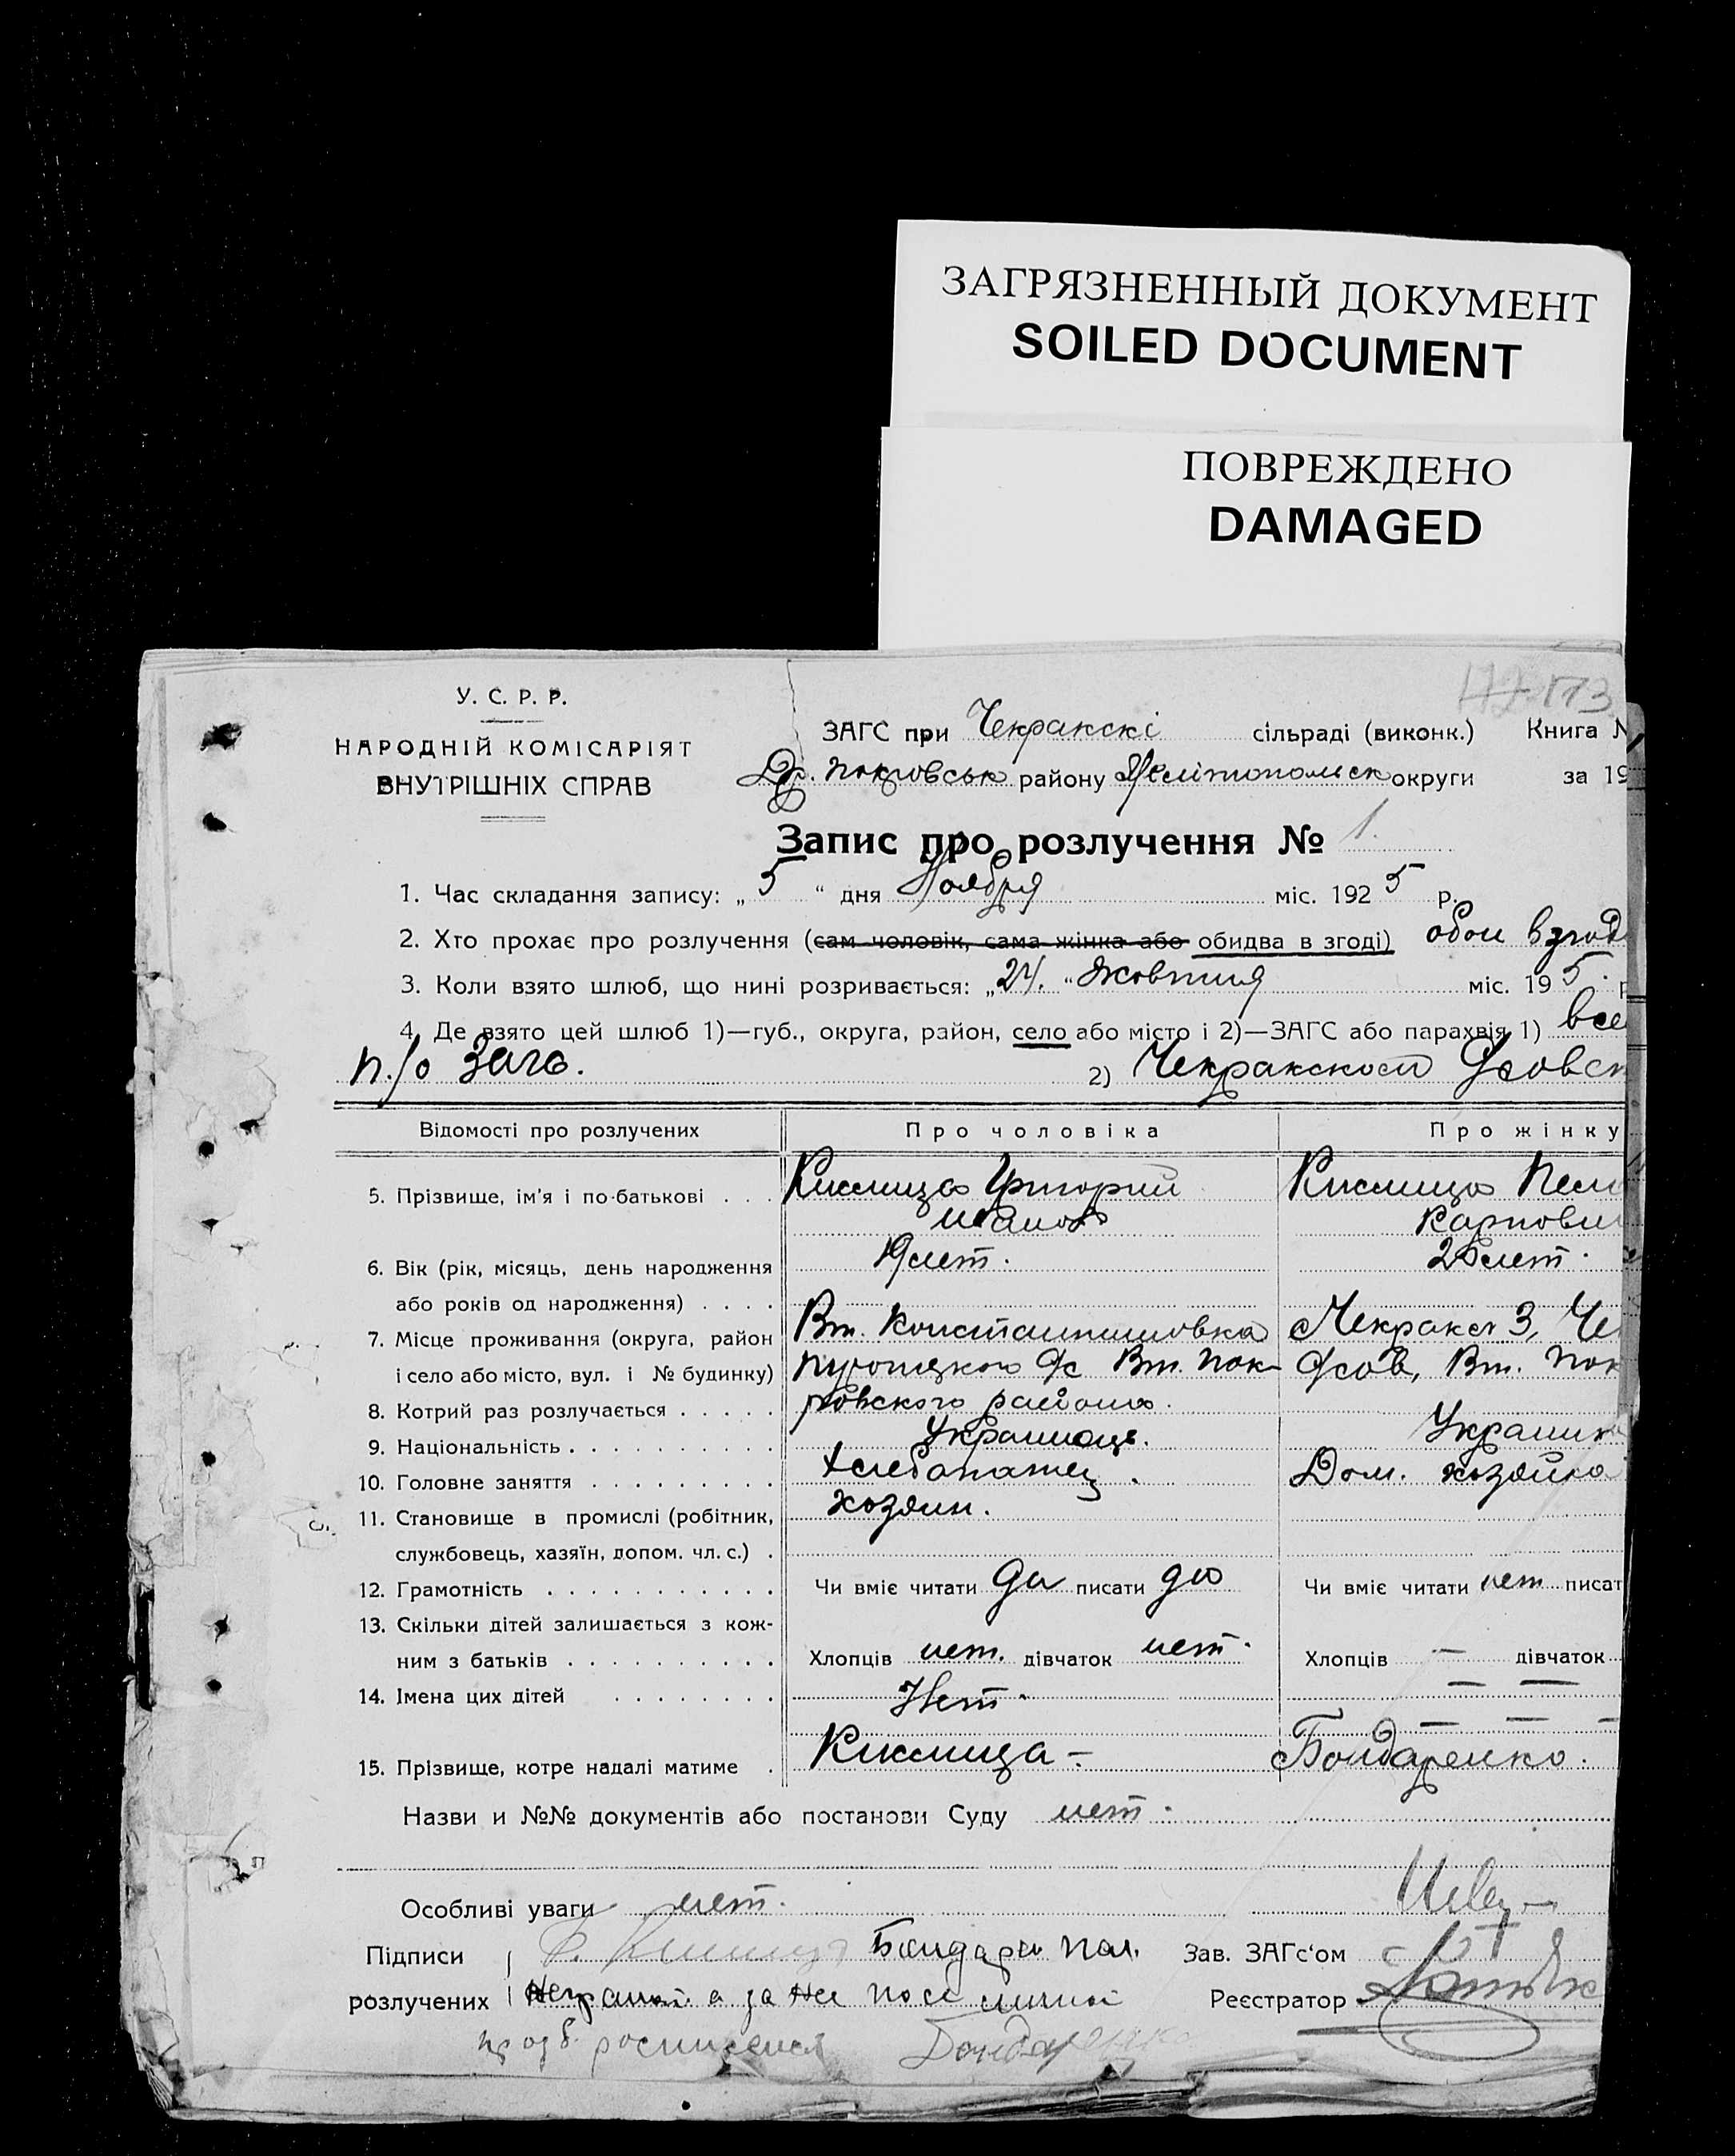 ЗАГРЯЗНЕННЫЙ ДОКУМЕНТ
SOILED DOCUMENT
ПОВРЕЖДЕНО
DAMAGED
173
У. С. Р. Р.
НАРОДНІЙ КОМІСАРІЯТ
ВНУТРІШНІХ СПРАВ
ЗАГС при Чекракскі сільраді (виконк.) Книга №
покровськ району Мелітопольск округи за 19
Запис про розлучення № 1.
1. Час складання запису: „5“ дня Ноября міс. 1925 р.
2. Хто прохає про розлучення (сам чоловік, сама жінка або обидва в згоді) обои взгод
3. Коли взято шлюб, що нині розривається: „24.“ Жовтня міс. 195. р
4. Де взято цей шлюб 1)—губ., округа, район, село або місто і 2)—ЗАГС або парахвія 1) все
п./о Загс. 2) Чекракском
Відомості про розлучених Про чоловіка Про жінку
5. Прізвище, ім'я і по-батькові . . . Кислица Григорий Кислица
Карповн
6. Вік (рік, місяць, день народження 19 лет. лет.
або років од народження) . . . .
7. Місце проживання (округа, район Вт. Константиновка Чекрак 3, Че
і село або місто, вул. і № будинку) Вт. Пок- Вт. Пок
8. Котрий раз розлучається . . . . . ровского района.
9. Національність . . . . . . . . . . Украинец. Украинк
10. Головне заняття . . . . . . . . . Хлебопашец. Дом. хозяйка
11. Становище в промислі (робітник, хозяин.
службовець, хазяїн, допом. чл. с.) .
12. Грамотність . . . . . . . . . . . Чи вміє читати да писати да Чи вміє читати нет писат
13. Скільки дітей залишається з кож-
ним з батьків . . . . . . . . . . Хлопців нет. дівчаток нет. Хлопців — дівчаток
14. Імена цих дітей . . . . . . . . Нет. — —
— — —
15. Прізвище, котре надалі матиме . Кислица — Бондаренко.
Назви и №№ документів або постанови Суду нет.
Особливі уваги нет.
Підписи Зав. ЗАГс'ом
розлучених а за Реєстратор
Бондаренко